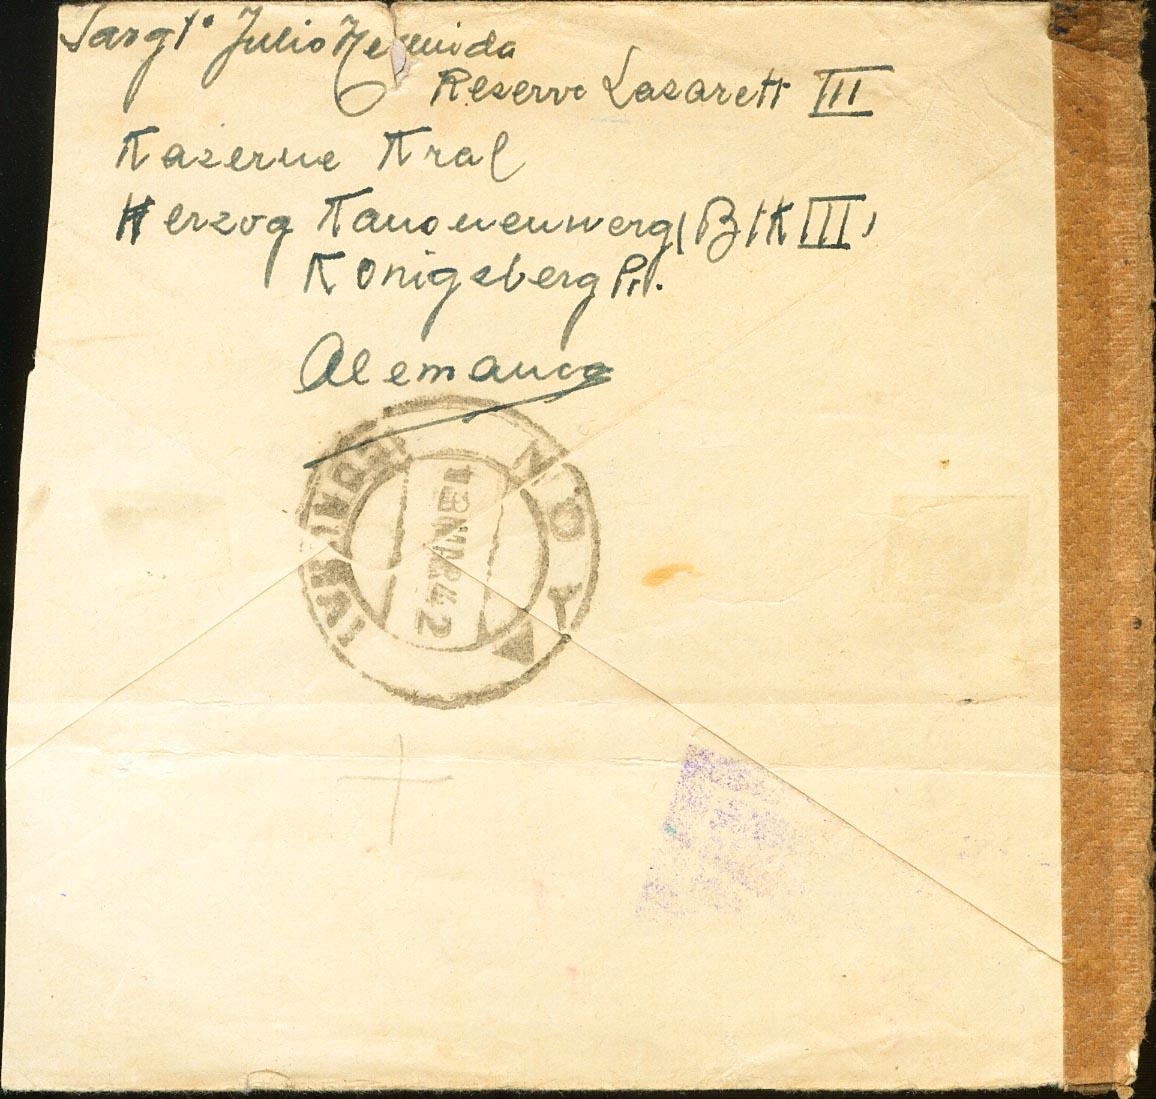 Sargt° Julio Hermida
Reserve Lasarett III
Kazerne Kral
Herzog Kanonenwerg (B/K III)
Konigsberg Pr.
Alemania
13 MAR 42